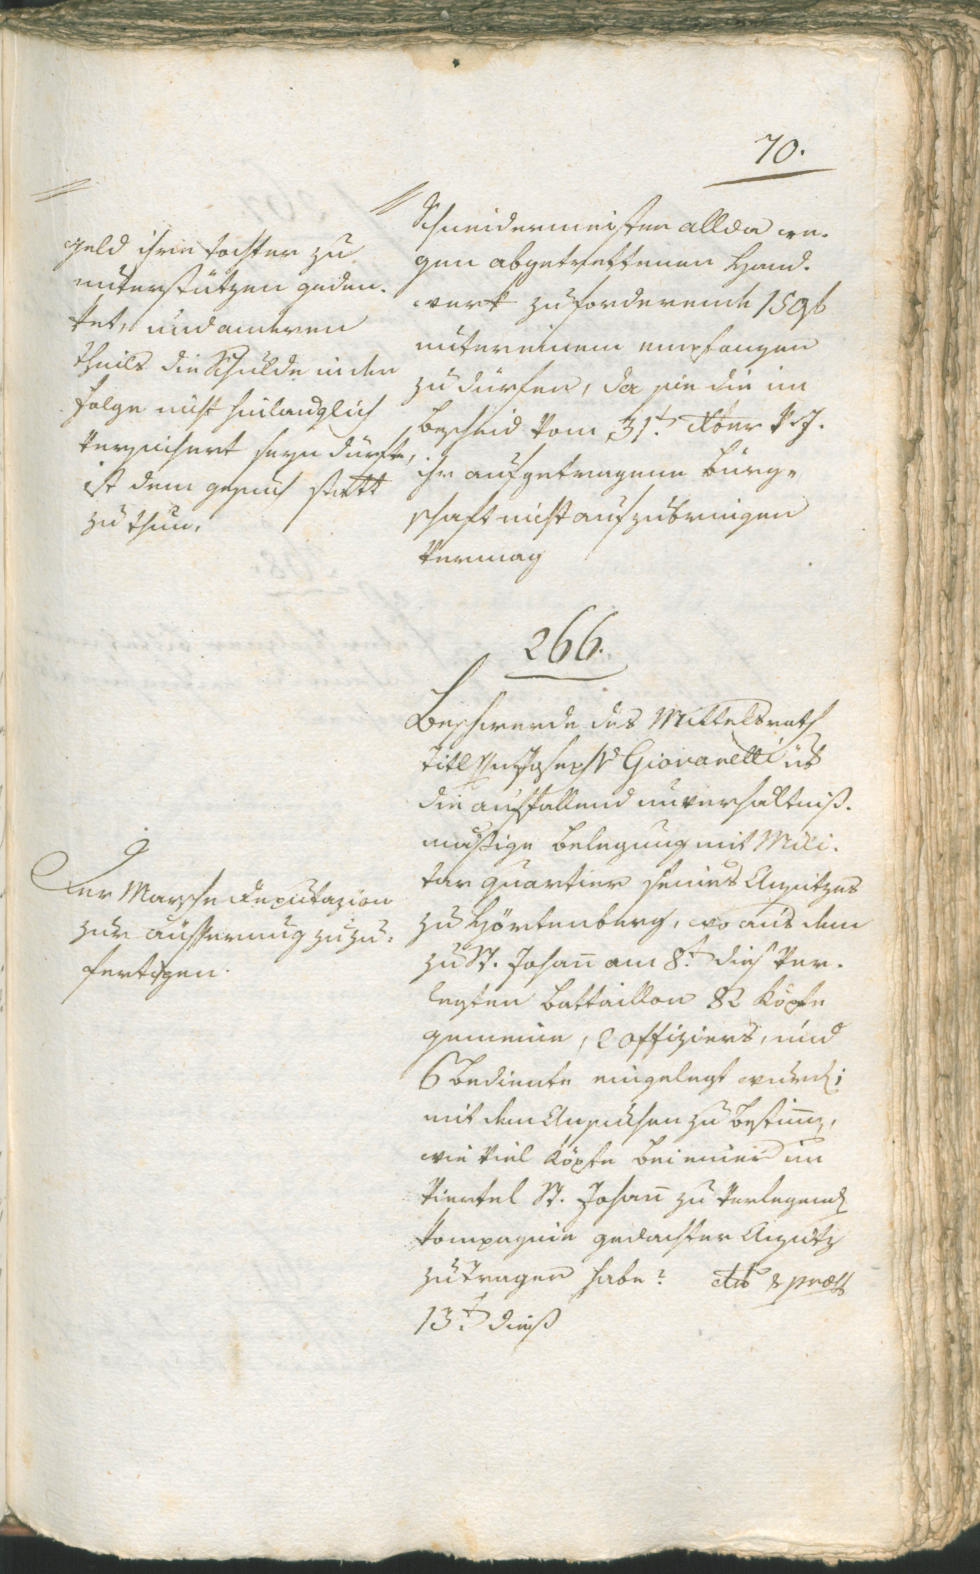 70.
geld ihre tochter zu
unterstützen geden-
ket, und anderen
theils die Schulde in der
folge nicht hinlanglich
versichert seyn dürfte,
ist dem gesuch statt
zu thun.
Schneidermeister allda we-
gen abgetrettenen Hand-
werk zufordernde 150 f
unter einem empfangen
zu dürfen, da sie die im
bescheid vom 31t. Xber v. J.
ihr aufgetragene bürg-
schaft nicht aufzubringen
vermag
266.
Beschwerde des Mittelsrath
Titl Hn Joseph v Giovanelli üb
die auffallend unverhältniß-
mäßige belegung mit Mili-
tar quartier seines Ansitzes
zu Hörtenberg, wo aus dem
zu St. Johañ am 8t. dieß ver-
legten battaillon 82 Köpfe
gemeine, 2 offiziers, und
6 bediente eingelegt wurd;
mit dem Ansuchen zu bestim̃,
wie viel Köpfe bei einer im
viertel St. Johañ zu verlegend
kompagnie gedachter Ansitz
zu tragen habe? dto & præs
13t. dieß
Der Marsche deputazion
zur äusserung zuzu-
fertigen.